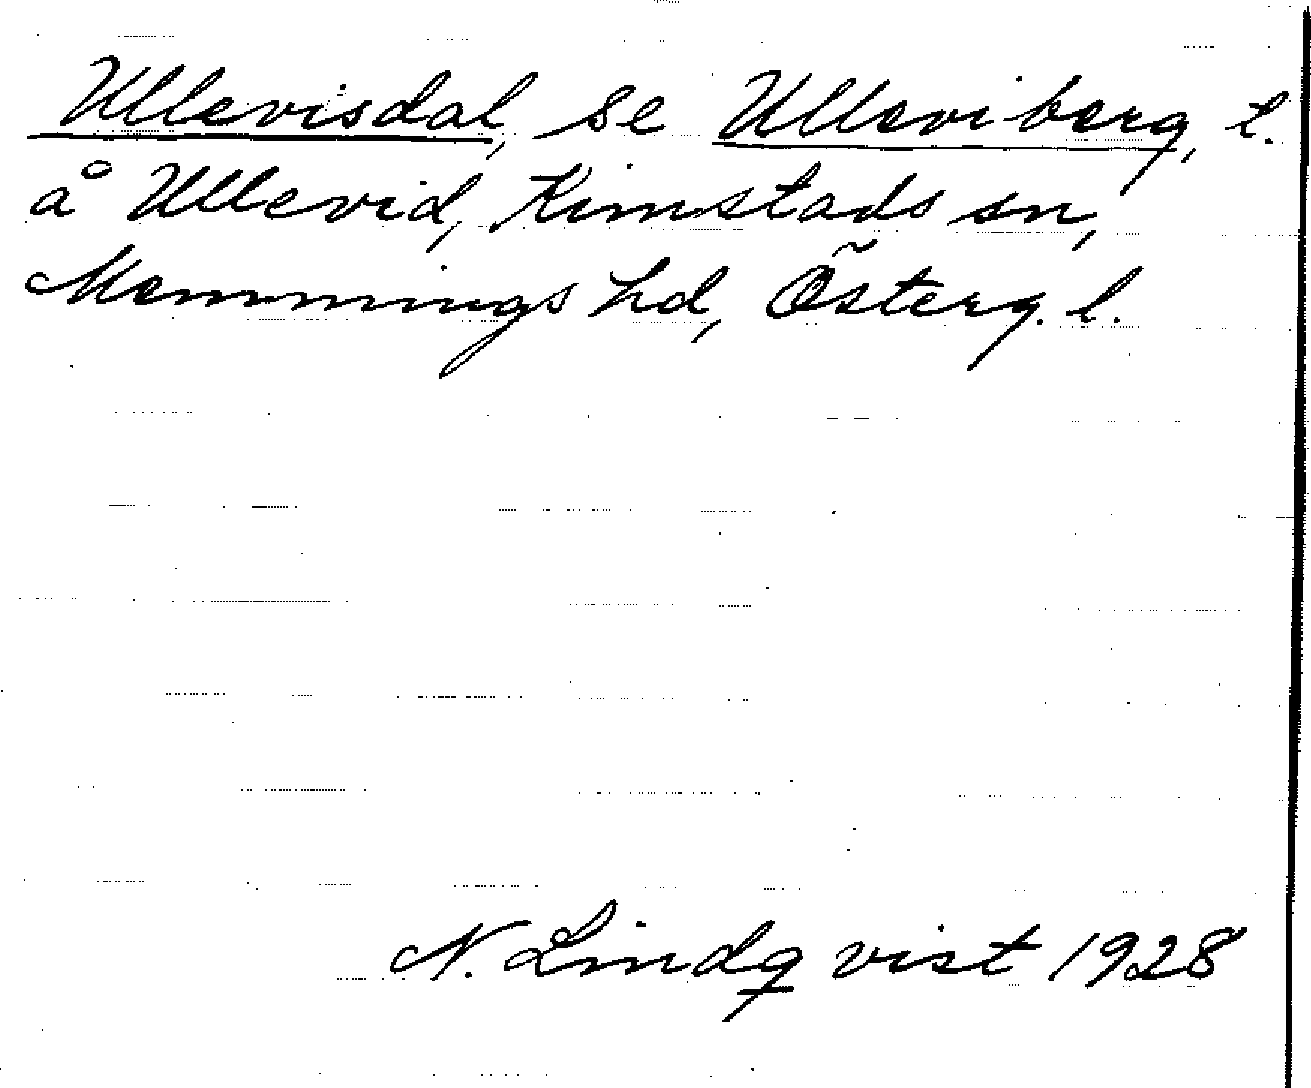 Ullevisdal, se Ulleviberg, t.
å Ullevid, Kimstads sn,
Memmings hd, Österg. l.
N. Lindqvist 1928